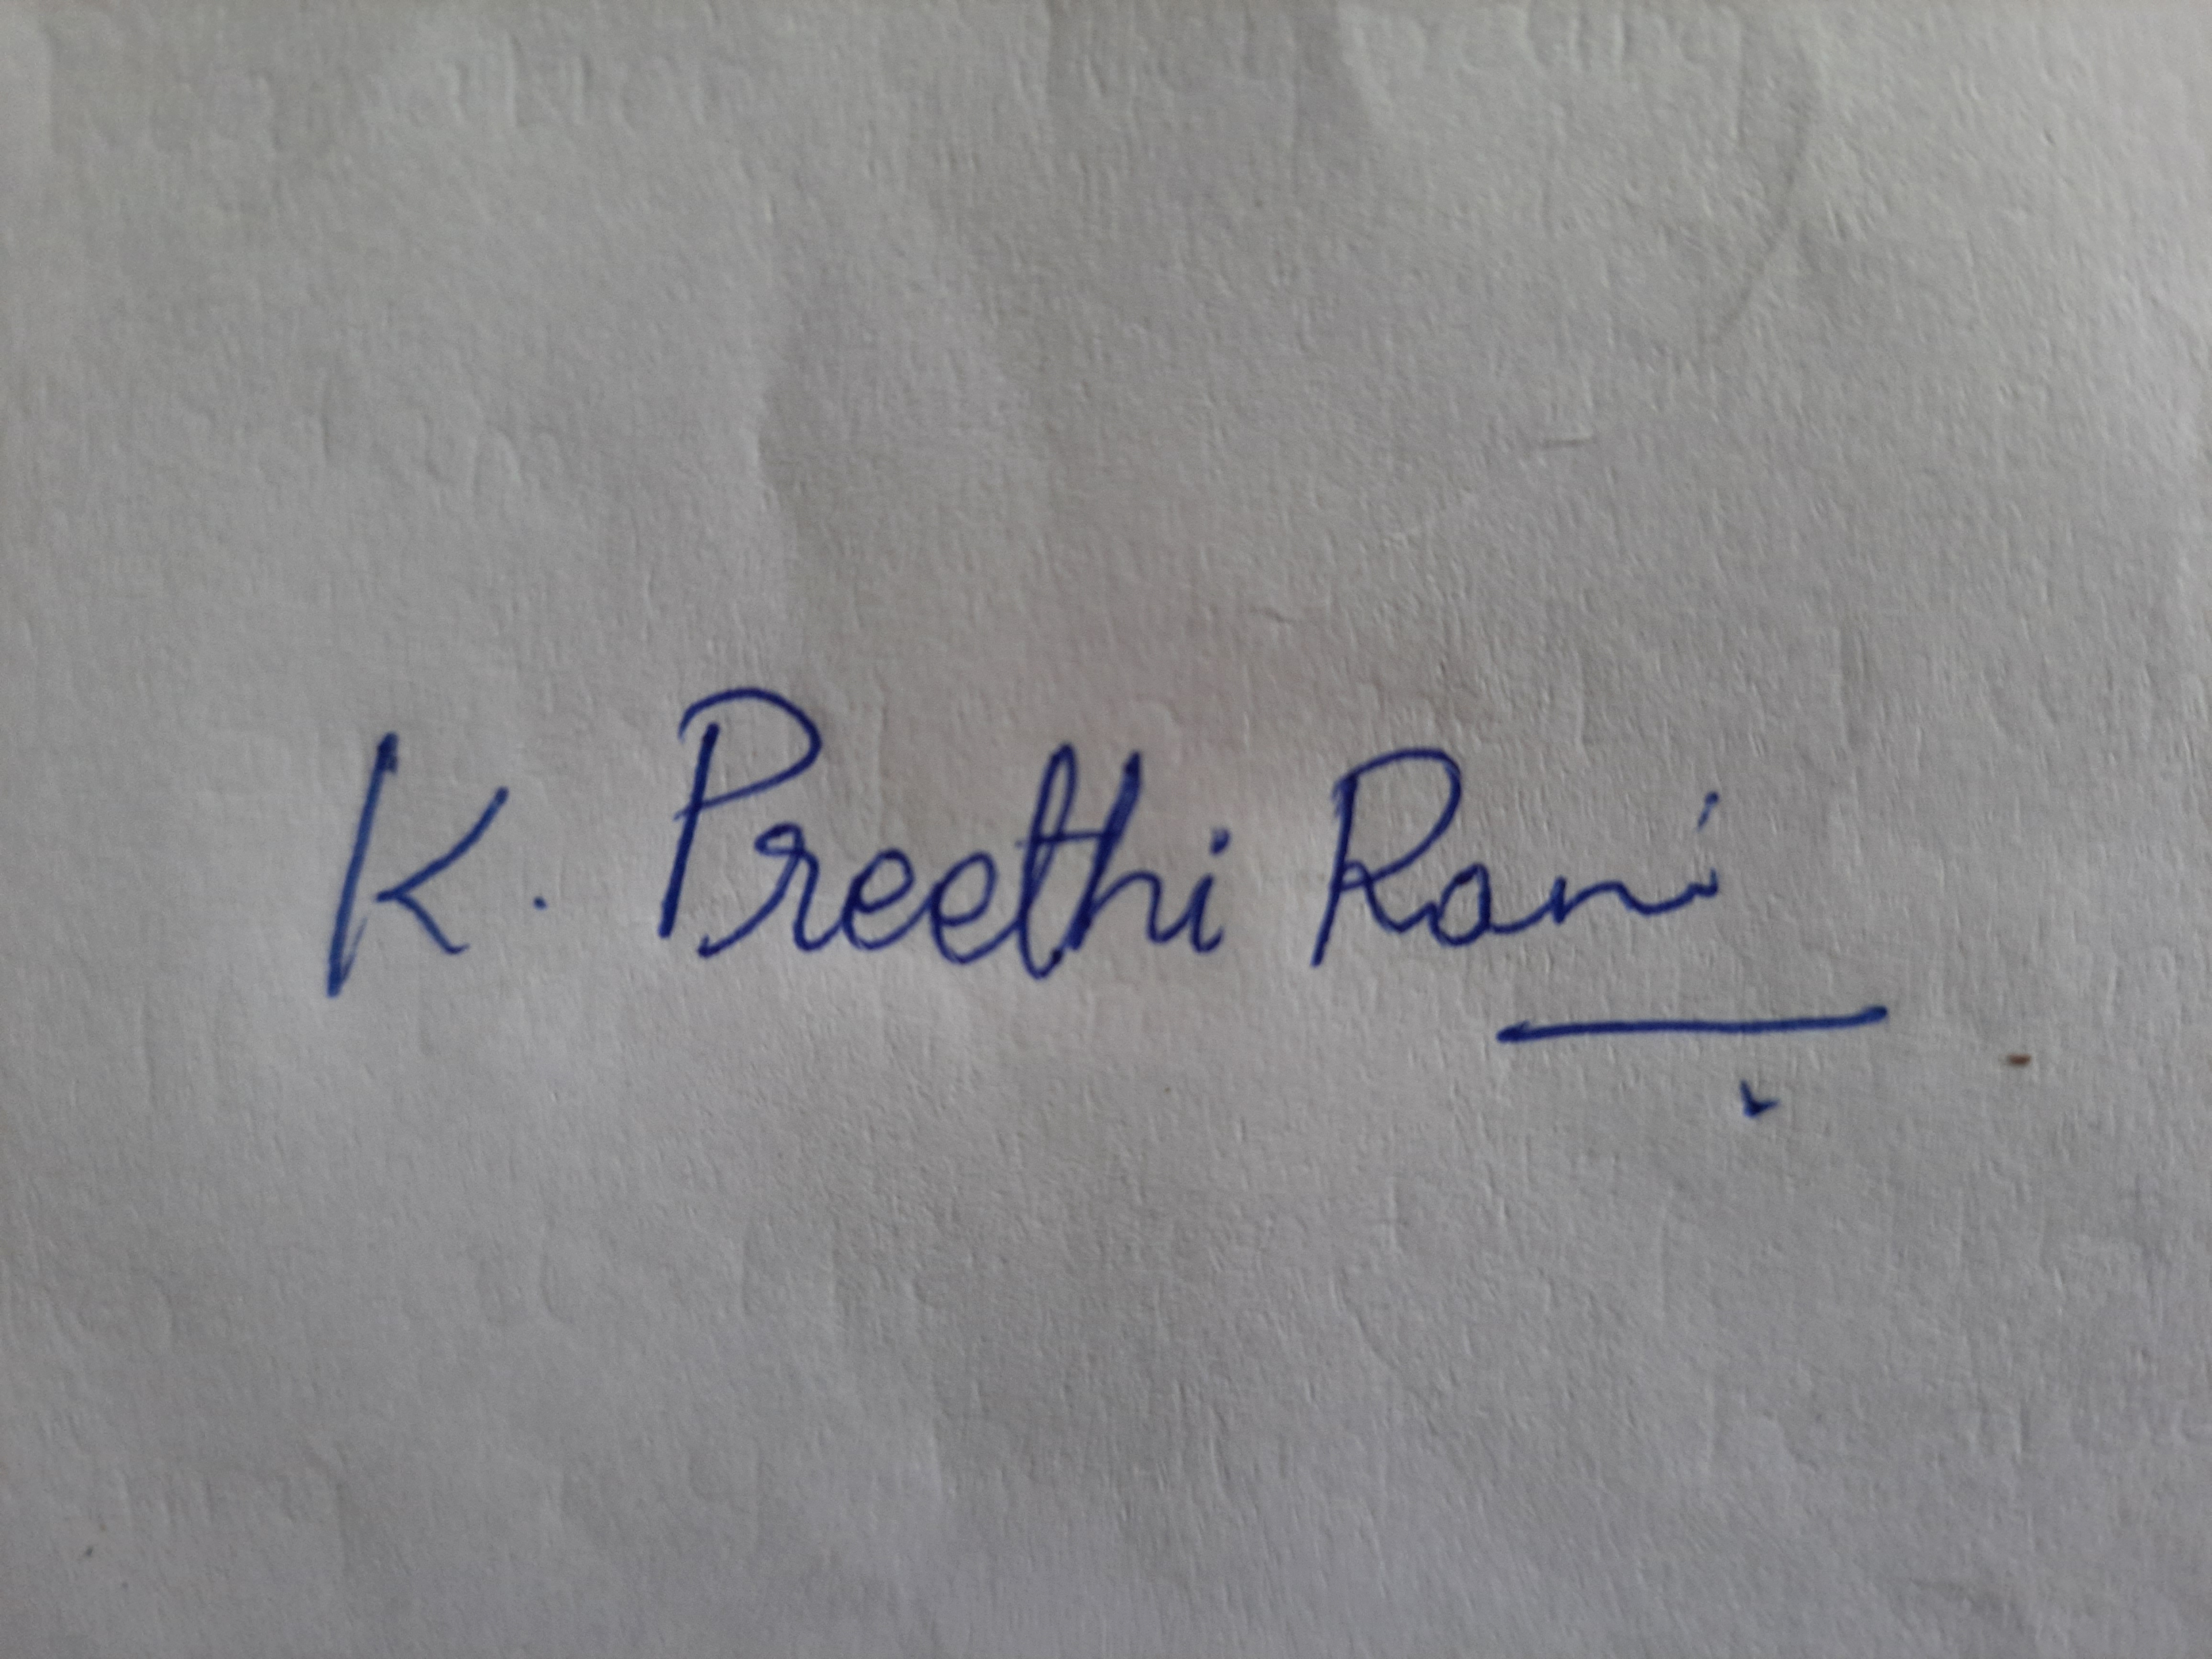 K. Preethi Rani